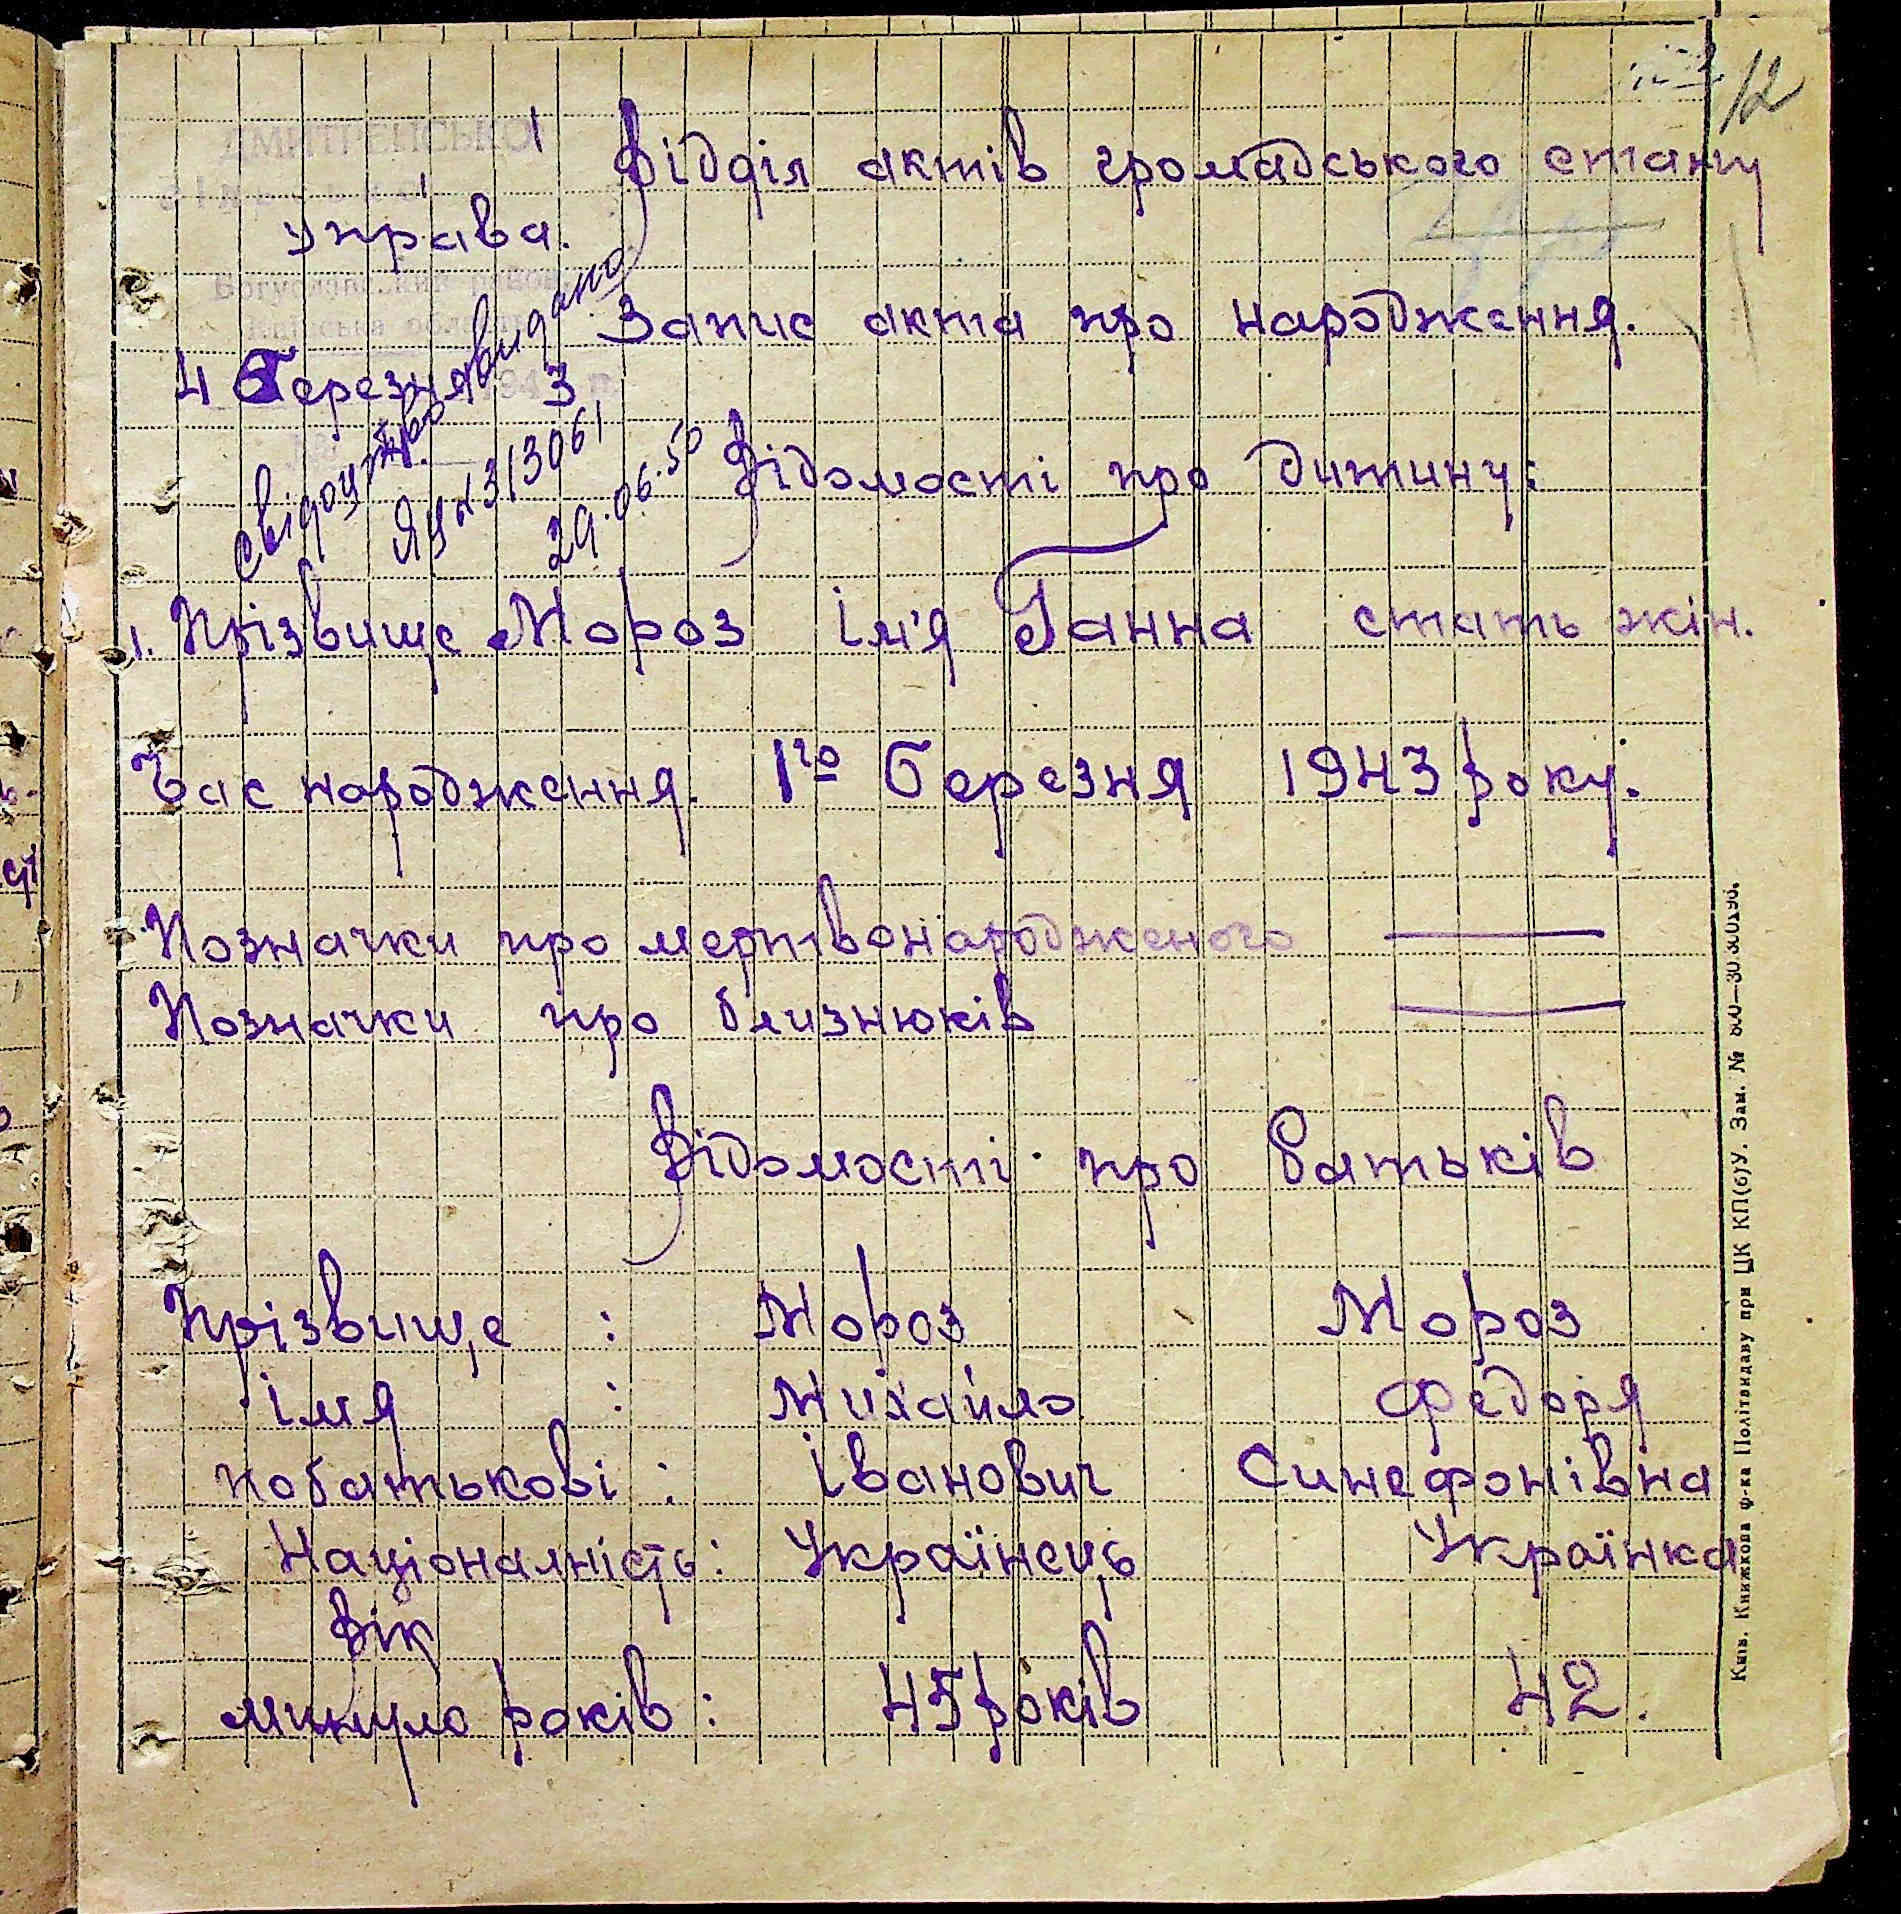 12
ДМИТРЕНСЬКО
Відділ актів громадського стану
управа.
Запис акта про народження.
4 березня 1943 р.
свідоцтво видано
ЯЦ №313061
29.06.50
Відомості про дитину:
1. Прізвище Мороз ім'я Ганна стать жін.
Час народження. 1го березня 1943 року.
Позначки про мертвонародженого
Позначки про близнюків
Відомості про батьків
Прізвище : Мороз Мороз
імя : Михайло Федоря
побатькові : Іванович Синефонівна
Націоналність: Українець Українка
Вік
минуло років : 45 років 42.
Київ. Книжкова ф-ка Політвидаву при ЦК КП(б)У. Зам. № 800—30.